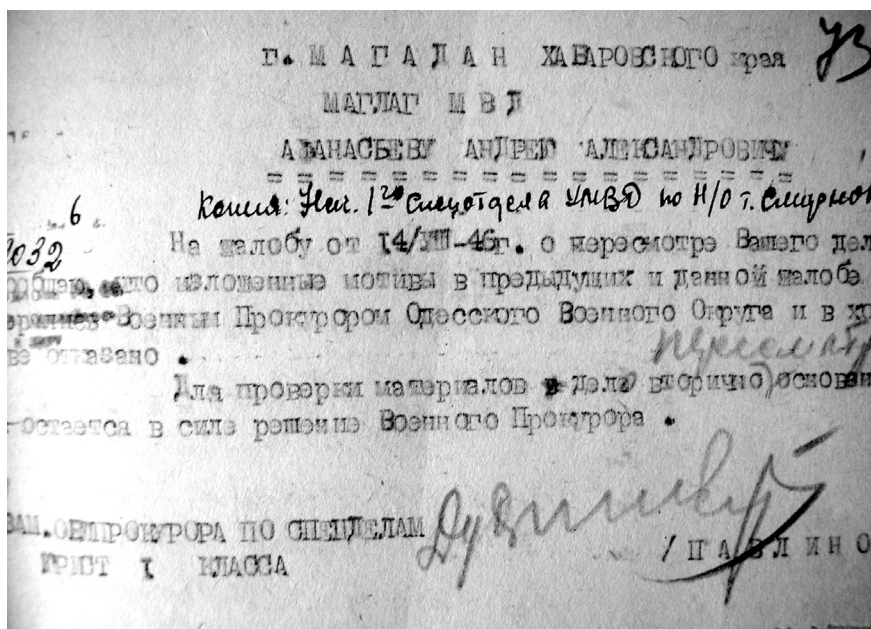 УЗ
г. МАГАДАН ХАБАРОВСКОГО края
МАГЛАГ МВД
АФАНАСЬЕВУ АНДРЕЮ АЛЕКСАНДРОВИЧУ
= = = = = = = = = = = = = = = = = =
Копия: Нач. 1го Спецотдела УМВД по Н/О т. Смирнов
6
2032
На жалобу от 14/УШ-46г. о пересмотре Вашего дел
сообщаю, что изложенные мотивы в предыдущих и данной жалобе
Военным Прокурором Одесского Военного Округа и в хо
отказано .
пересмотр
Для проверки материалов дела вторично основан
остается в силе решение Военного Прокурора .
ЗАМ. ОБЛПРОКУРОРА ПО СПЕЦДЕЛАМ
ЮРИСТ I КЛАССА
/ПАВЛИНО